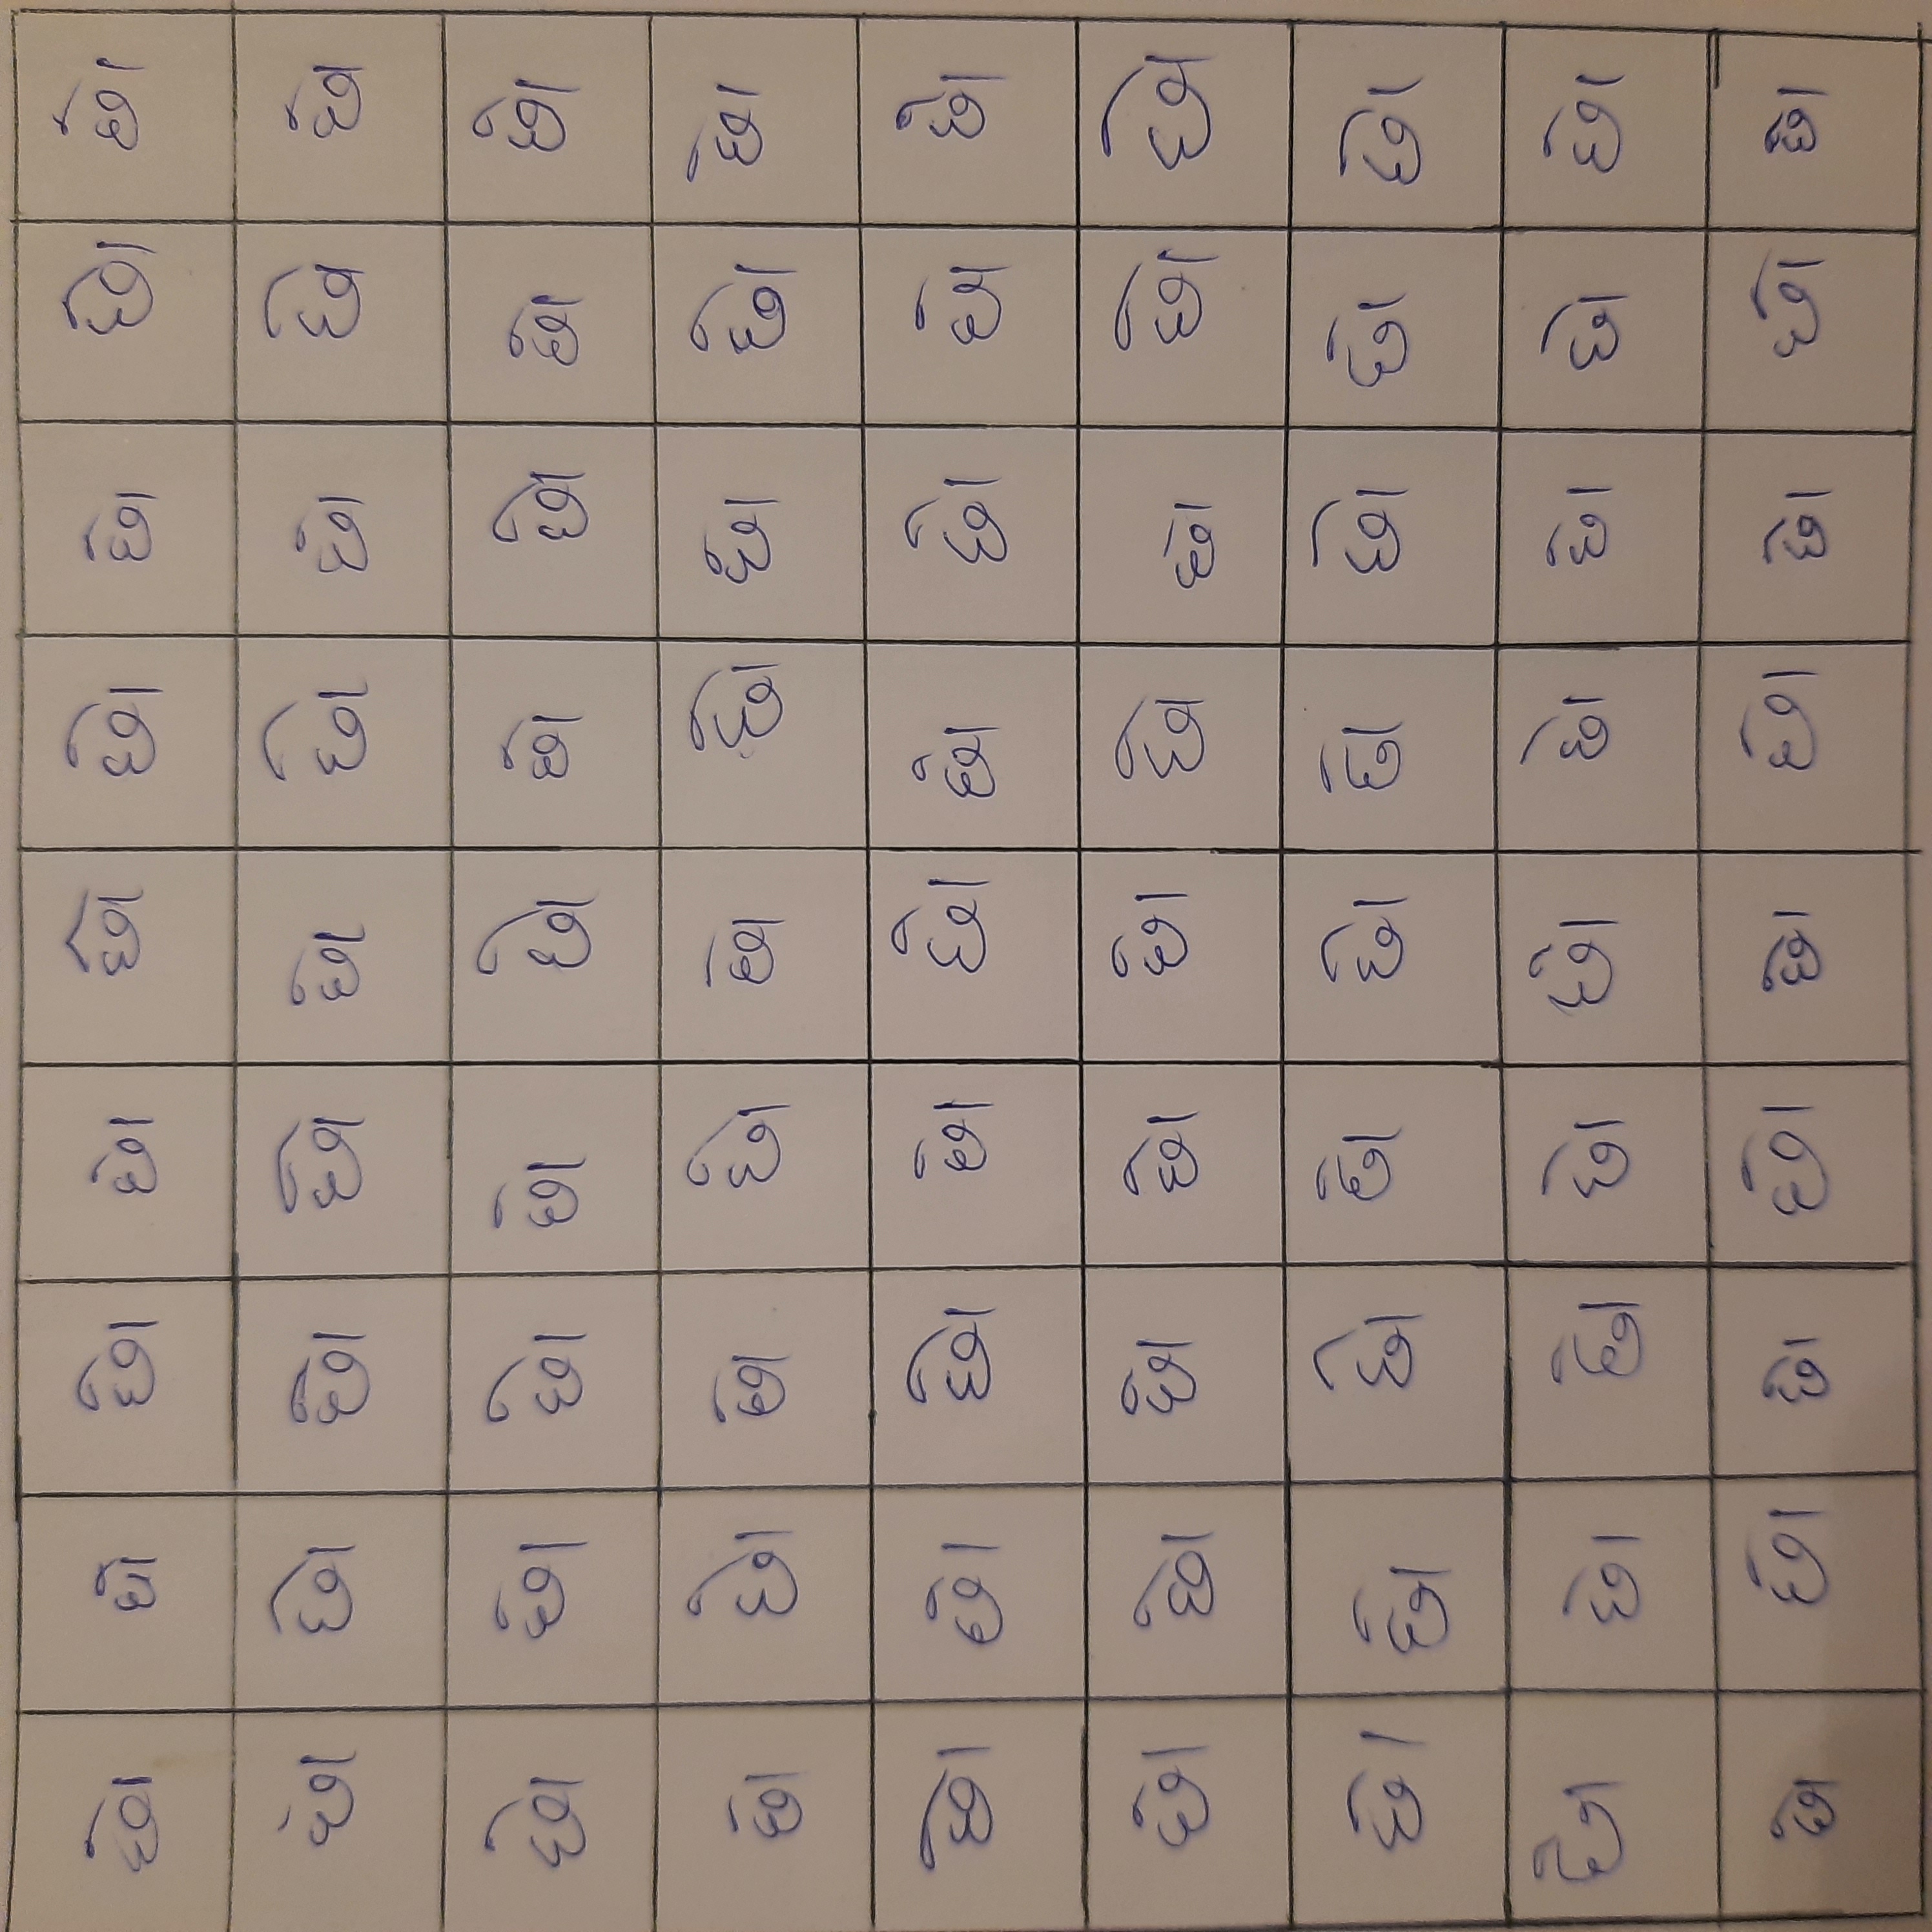 છો છો છો છો છો છો છો છો છો
છો છો છો છો છો છો છો છો છો
છો છો છો છો છો છો છો છો છો
છો છો છો છો છો છો છો છો છો
છો છો છો છો છો છો છો છો છો
છો છો છો છો છો છો છો છો છો
છો છો છો છો છો છો છો છો છો
છો છો છો છો છો છો છો છો છો
છો છો છો છો છો છો છો છો છો